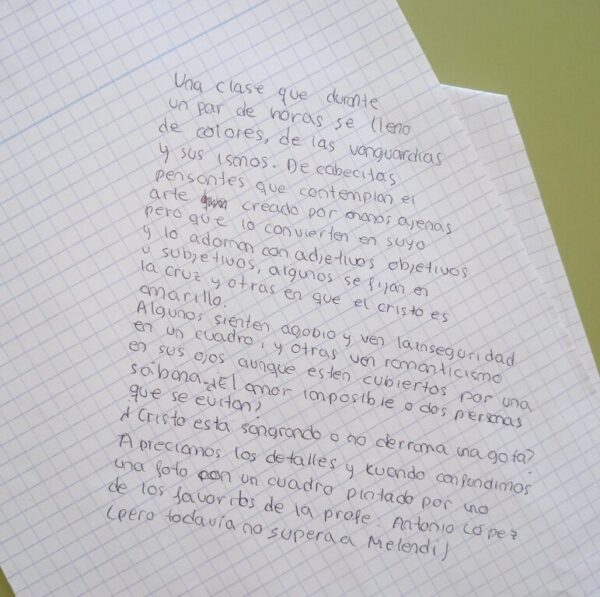 Una clase que durante
un par de horas se lleno
de colores, de las vanguardias
y sus ismos. De cabecitas
pensantes que contemplan el
arte creado por manos ajenas
pero que lo convierten en suyo
y lo adornan con adjetivos objetivos
u subjetivos, algunos se fijan en
la cruz y otras en que el cristo es
amarillo.
Algunos sienten agobio y ven la inseguridad
en un cuadro, y otras ven romanticismo
en sus ojos aunque esten cubiertos por una
sabana. ¿El amor imposible o dos personas
que se evitan?
¿Cristo esta sangrando o no derrama una gota?
Apreciamos los detalles y kuando confundimos
una foto con un cuadro pintado por uno
de los favoritos de la profe: Antonio López
(pero todavía no supera a Melendi)